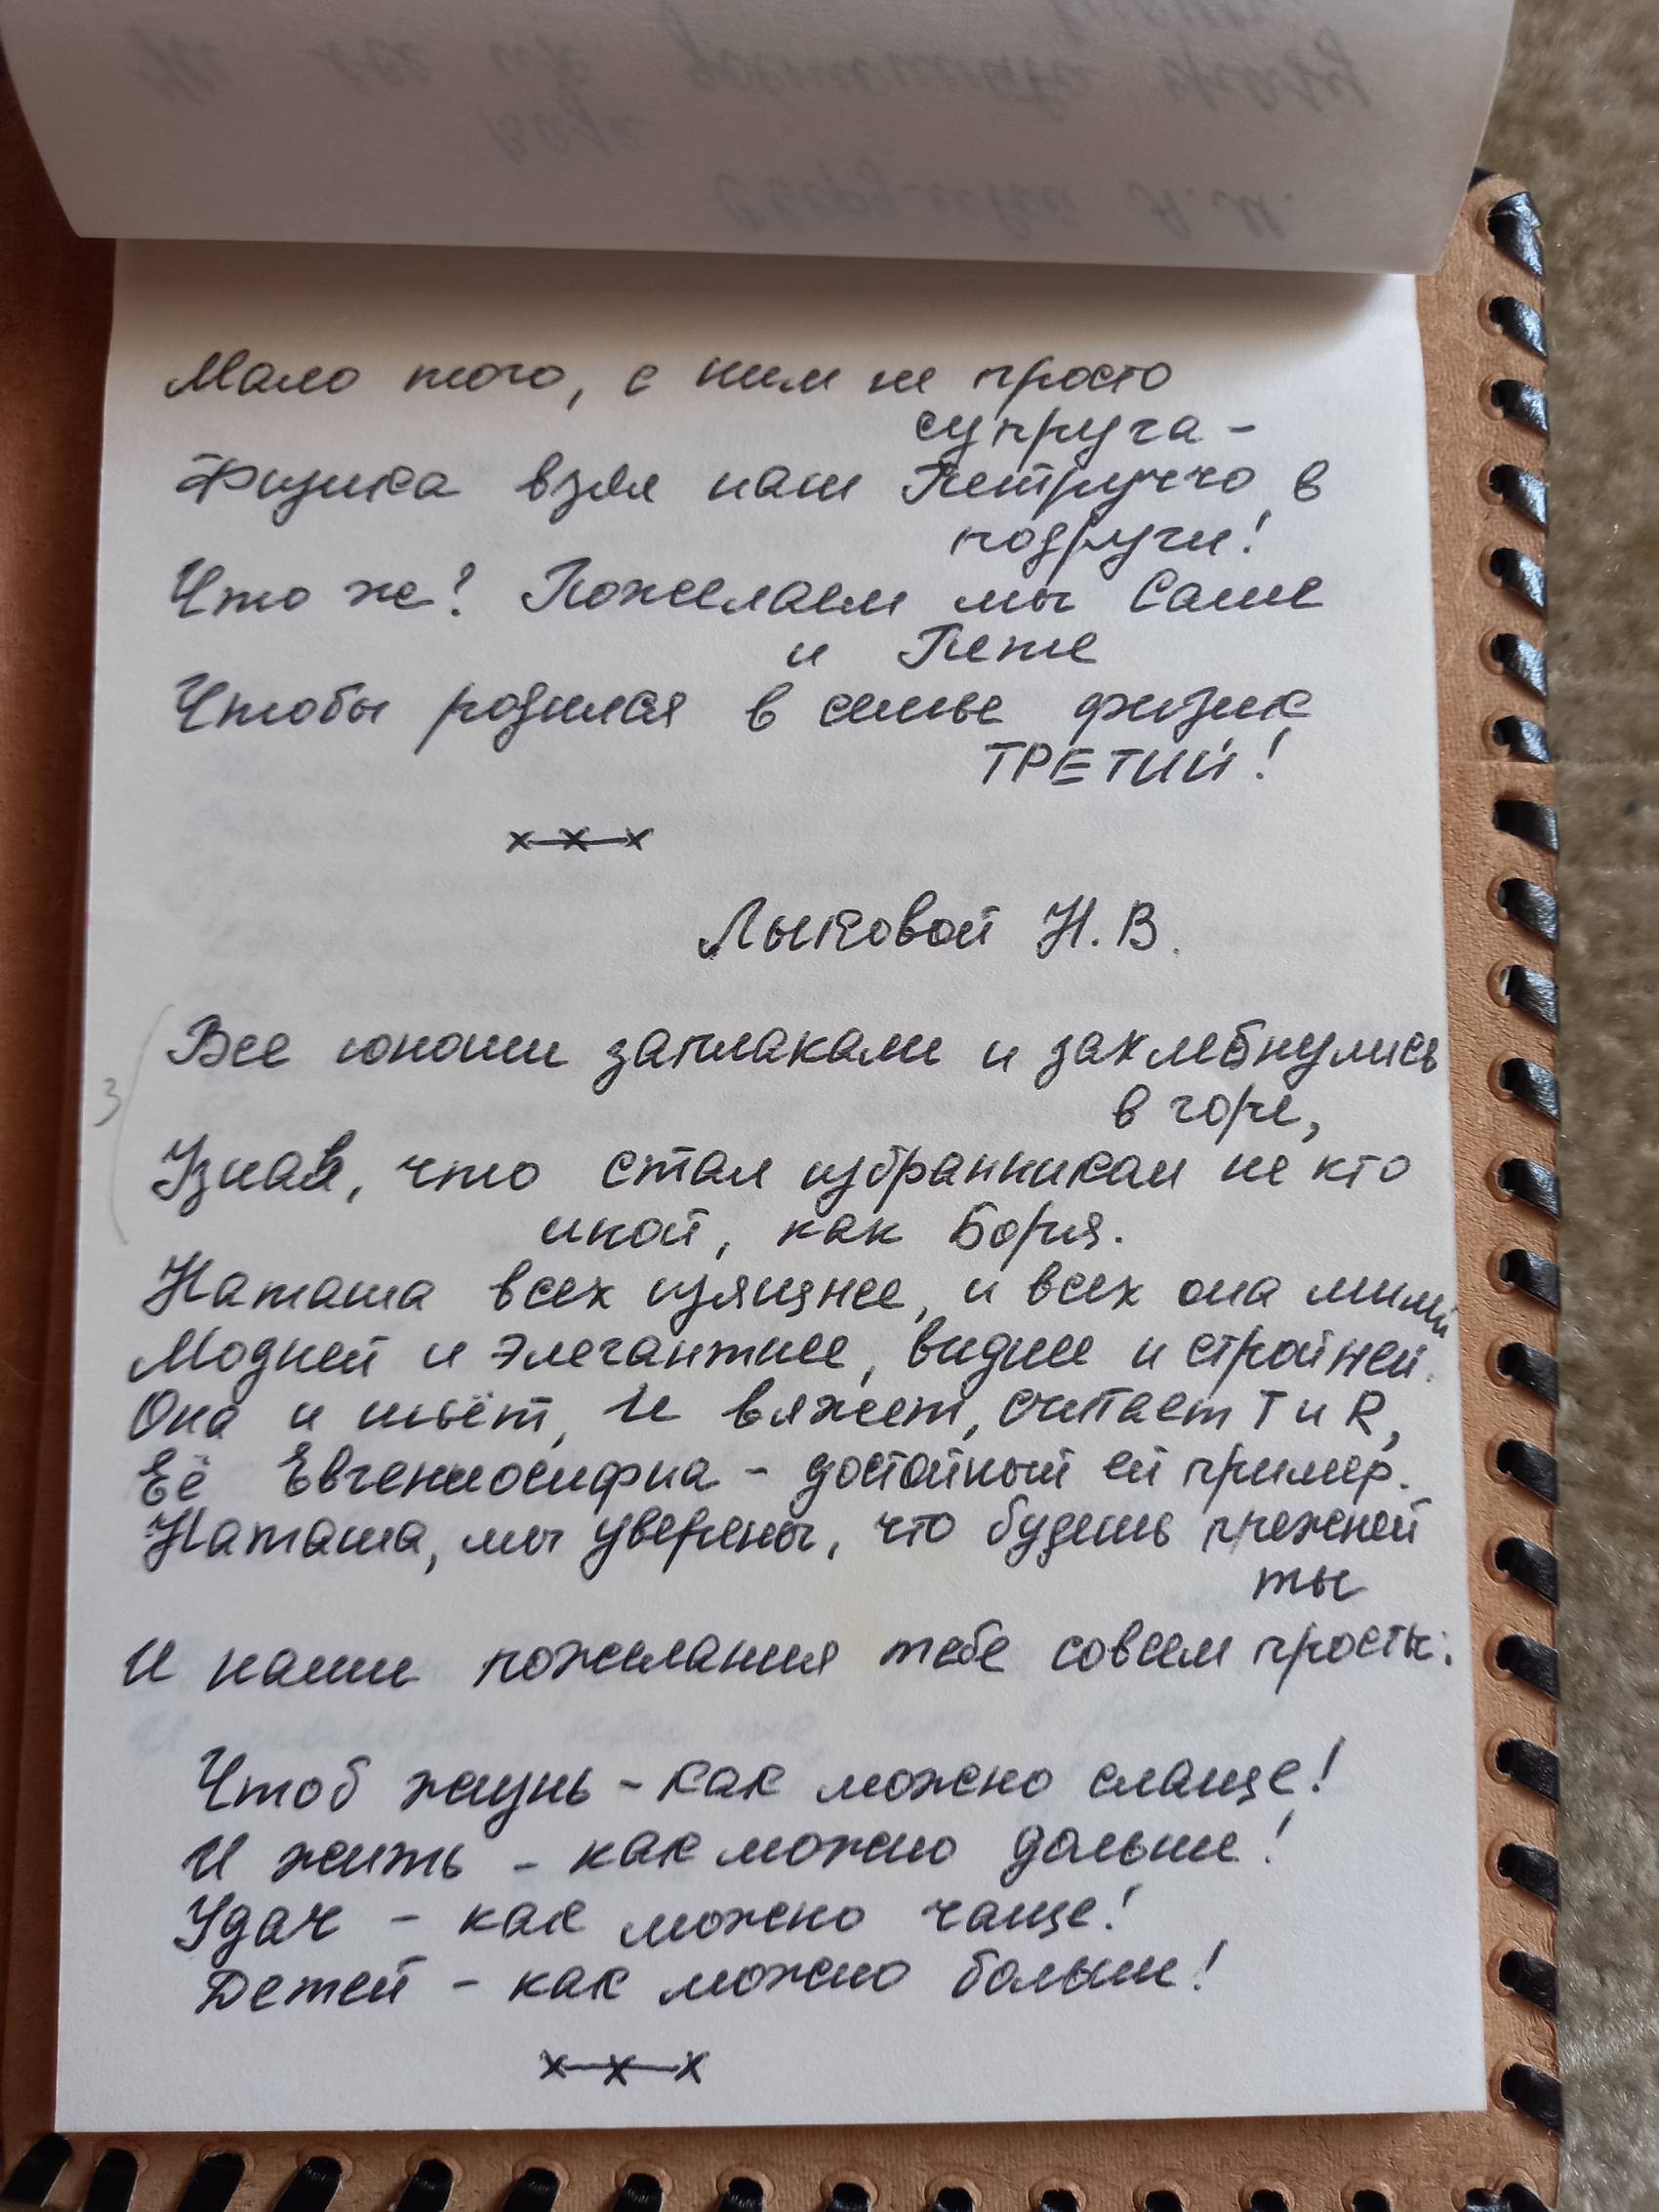 Мало того, с ним не просто
супруга -
Физика взял наш Петруччо в
подруги!
Что же? Пожелаем мы Саше
и Пете
Чтобы родился в семье физик
ТРЕТИЙ!
х-х-х
Лыковой Н.В.
Все юноши заплакали и захлебнулись
в горе,
3
Узнав, что стал избранником не кто
иной, как Боря.
Наташа всех изящнее, и всех она милей
Модней и элегантнее, виднее и стройней.
Она и шьёт, и вяжет, считает T и R,
Её Евгениосифна - достойный ей пример.
Наташа, мы уверены, что будешь прежней
ты
И наши пожелания тебе совсем просты:
Чтоб жизнь - как можно слаще!
И жить - как можно дольше!
Удач - как можно чаще!
Детей - как можно больше!
х-х-х